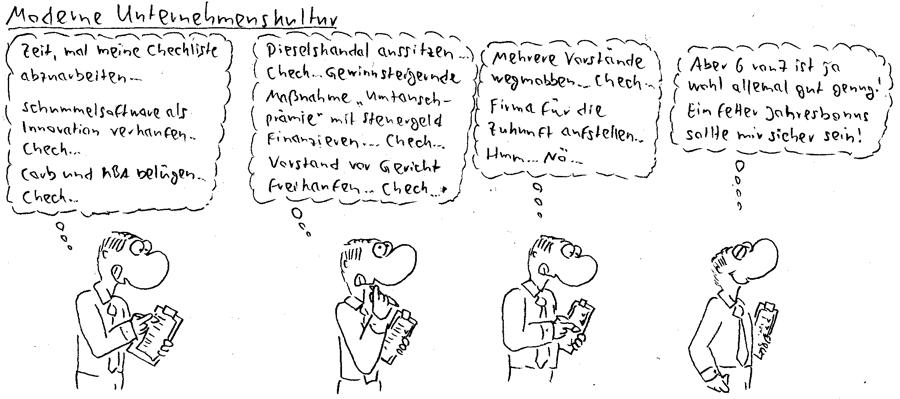 Moderne Unternehmenskultur
Zeit, mal meine Checkliste
abzuarbeiten...
Schummelsoftware als
Innovation verkaufen...
Check...
Carb und KBA belügen...
Check...
Dieselskandal aussitzen...
Check... Gewinnsteigernde
Maßnahme „Umtausch-
prämie" mit Steuergeld
Finanzieren... Check...
Vorstand vor Gericht
freikaufen... Check...
Mehrere Vorstände
wegmobben... Check...
Firma für die
Zukunft aufstellen...
Hmm... Nö...
Aber 6 von 7 ist ja
wohl allemal gut genug!
Ein fetter Jahresbonus
sollte mir sicher sein!